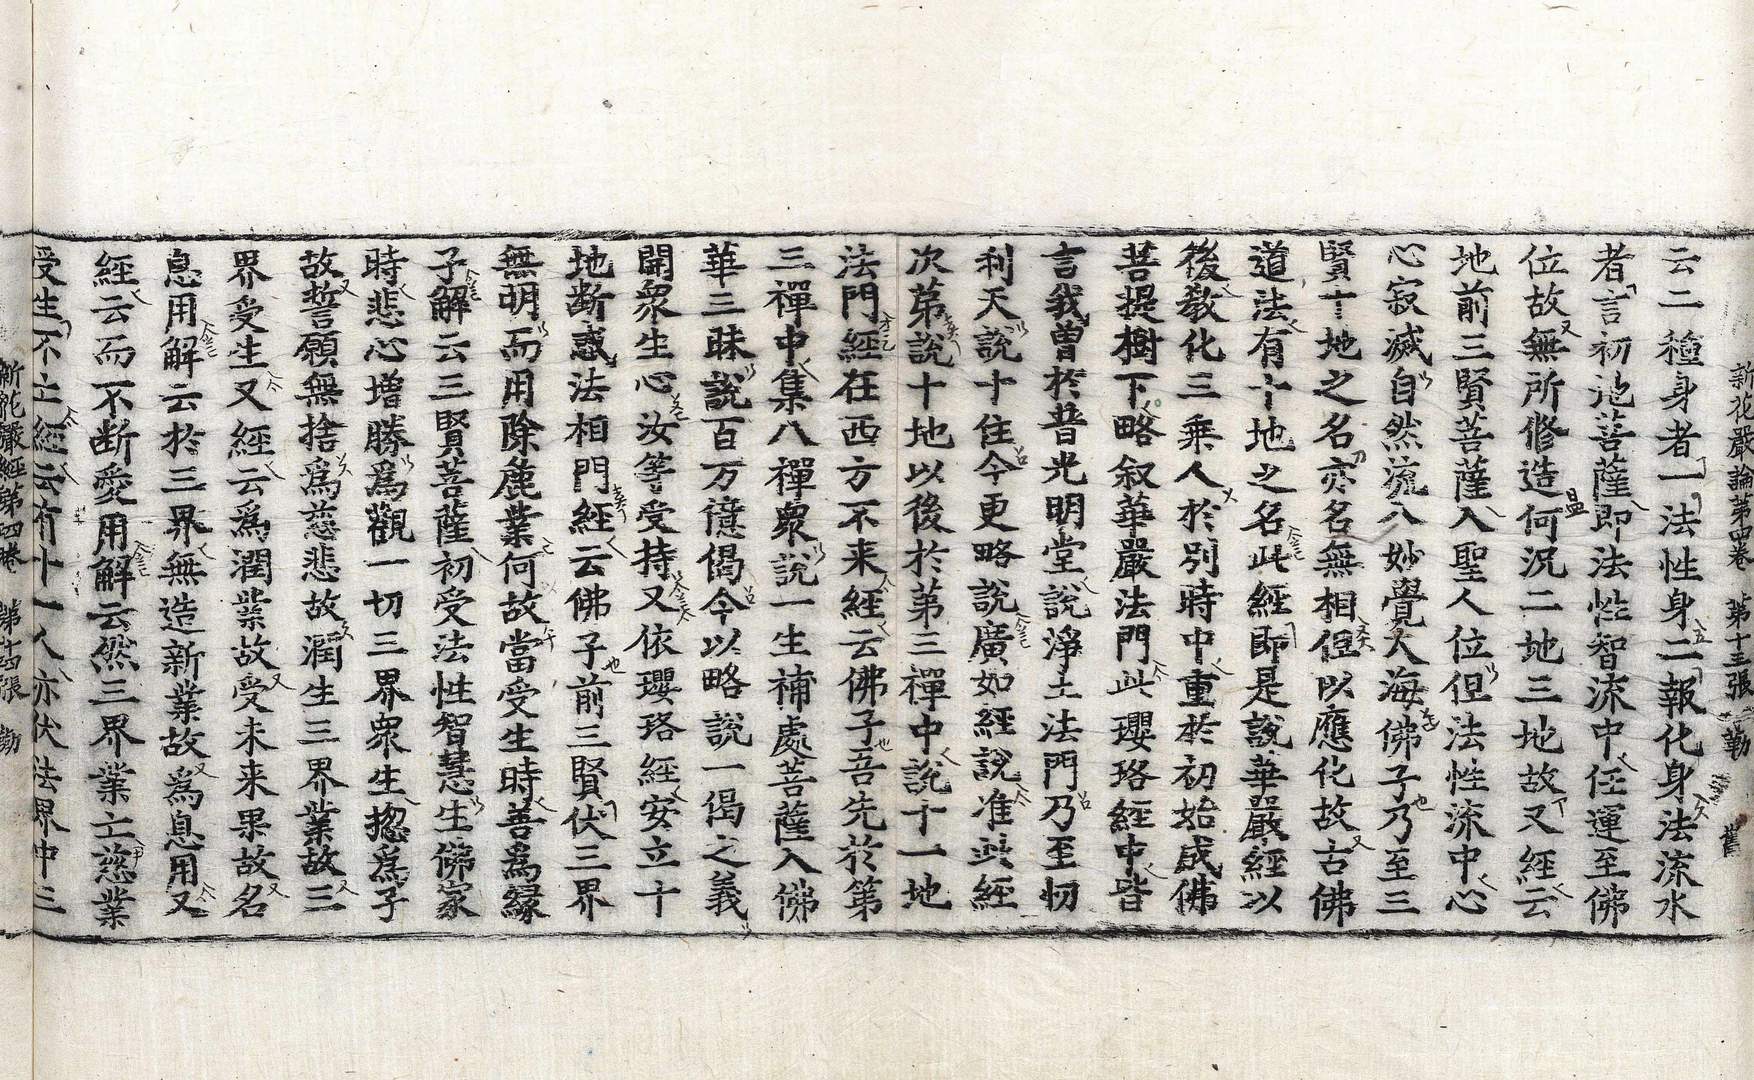 新花嚴論第四卷 第十三張 勤
云二種身者一法性身二報化身法流水
者言初地菩薩即法性智流中任運至佛
位故無所修造何況二地三地故又經云
地前三賢菩薩入聖人位但法性流中心
心寂滅自然流入妙覺大海佛子乃至三
賢十地之名亦名無相但以應化故古佛
道法有十地之名此經即是說華嚴經以
後教化三乘人於別時中重於初始成佛
菩提樹下略叙華嚴法門此瓔珞經中皆
言我曾於普光明堂說淨土法門乃至忉
利天說十住今更略說廣如經說准此經
次第說十地以後於第三禪中說十一地
法門經在西方不来經云佛子吾先於第
三禪中集八禪衆說一生補處菩薩入佛
華三昧說百万億偈今以略說一偈之義
開衆生心汝等受持又依瓔珞經安立十
地断惑法相門經云佛子前三賢伏三界
無明而用除麁業何故當受生時善爲縁
子解云三賢菩薩初受法性智慧生佛家
時悲心增勝爲觀一切三界衆生揔爲子
故誓願無捨爲慈悲故潤生三界業故三
界受生又經云爲潤業故受未来果故名
息用解云於三界無造新業故爲息用又
經云而不断愛用解云然三界業亡慈業
受生不亡經云有十一人亦伏法界中三
新花嚴經第四卷 第十四張 勤